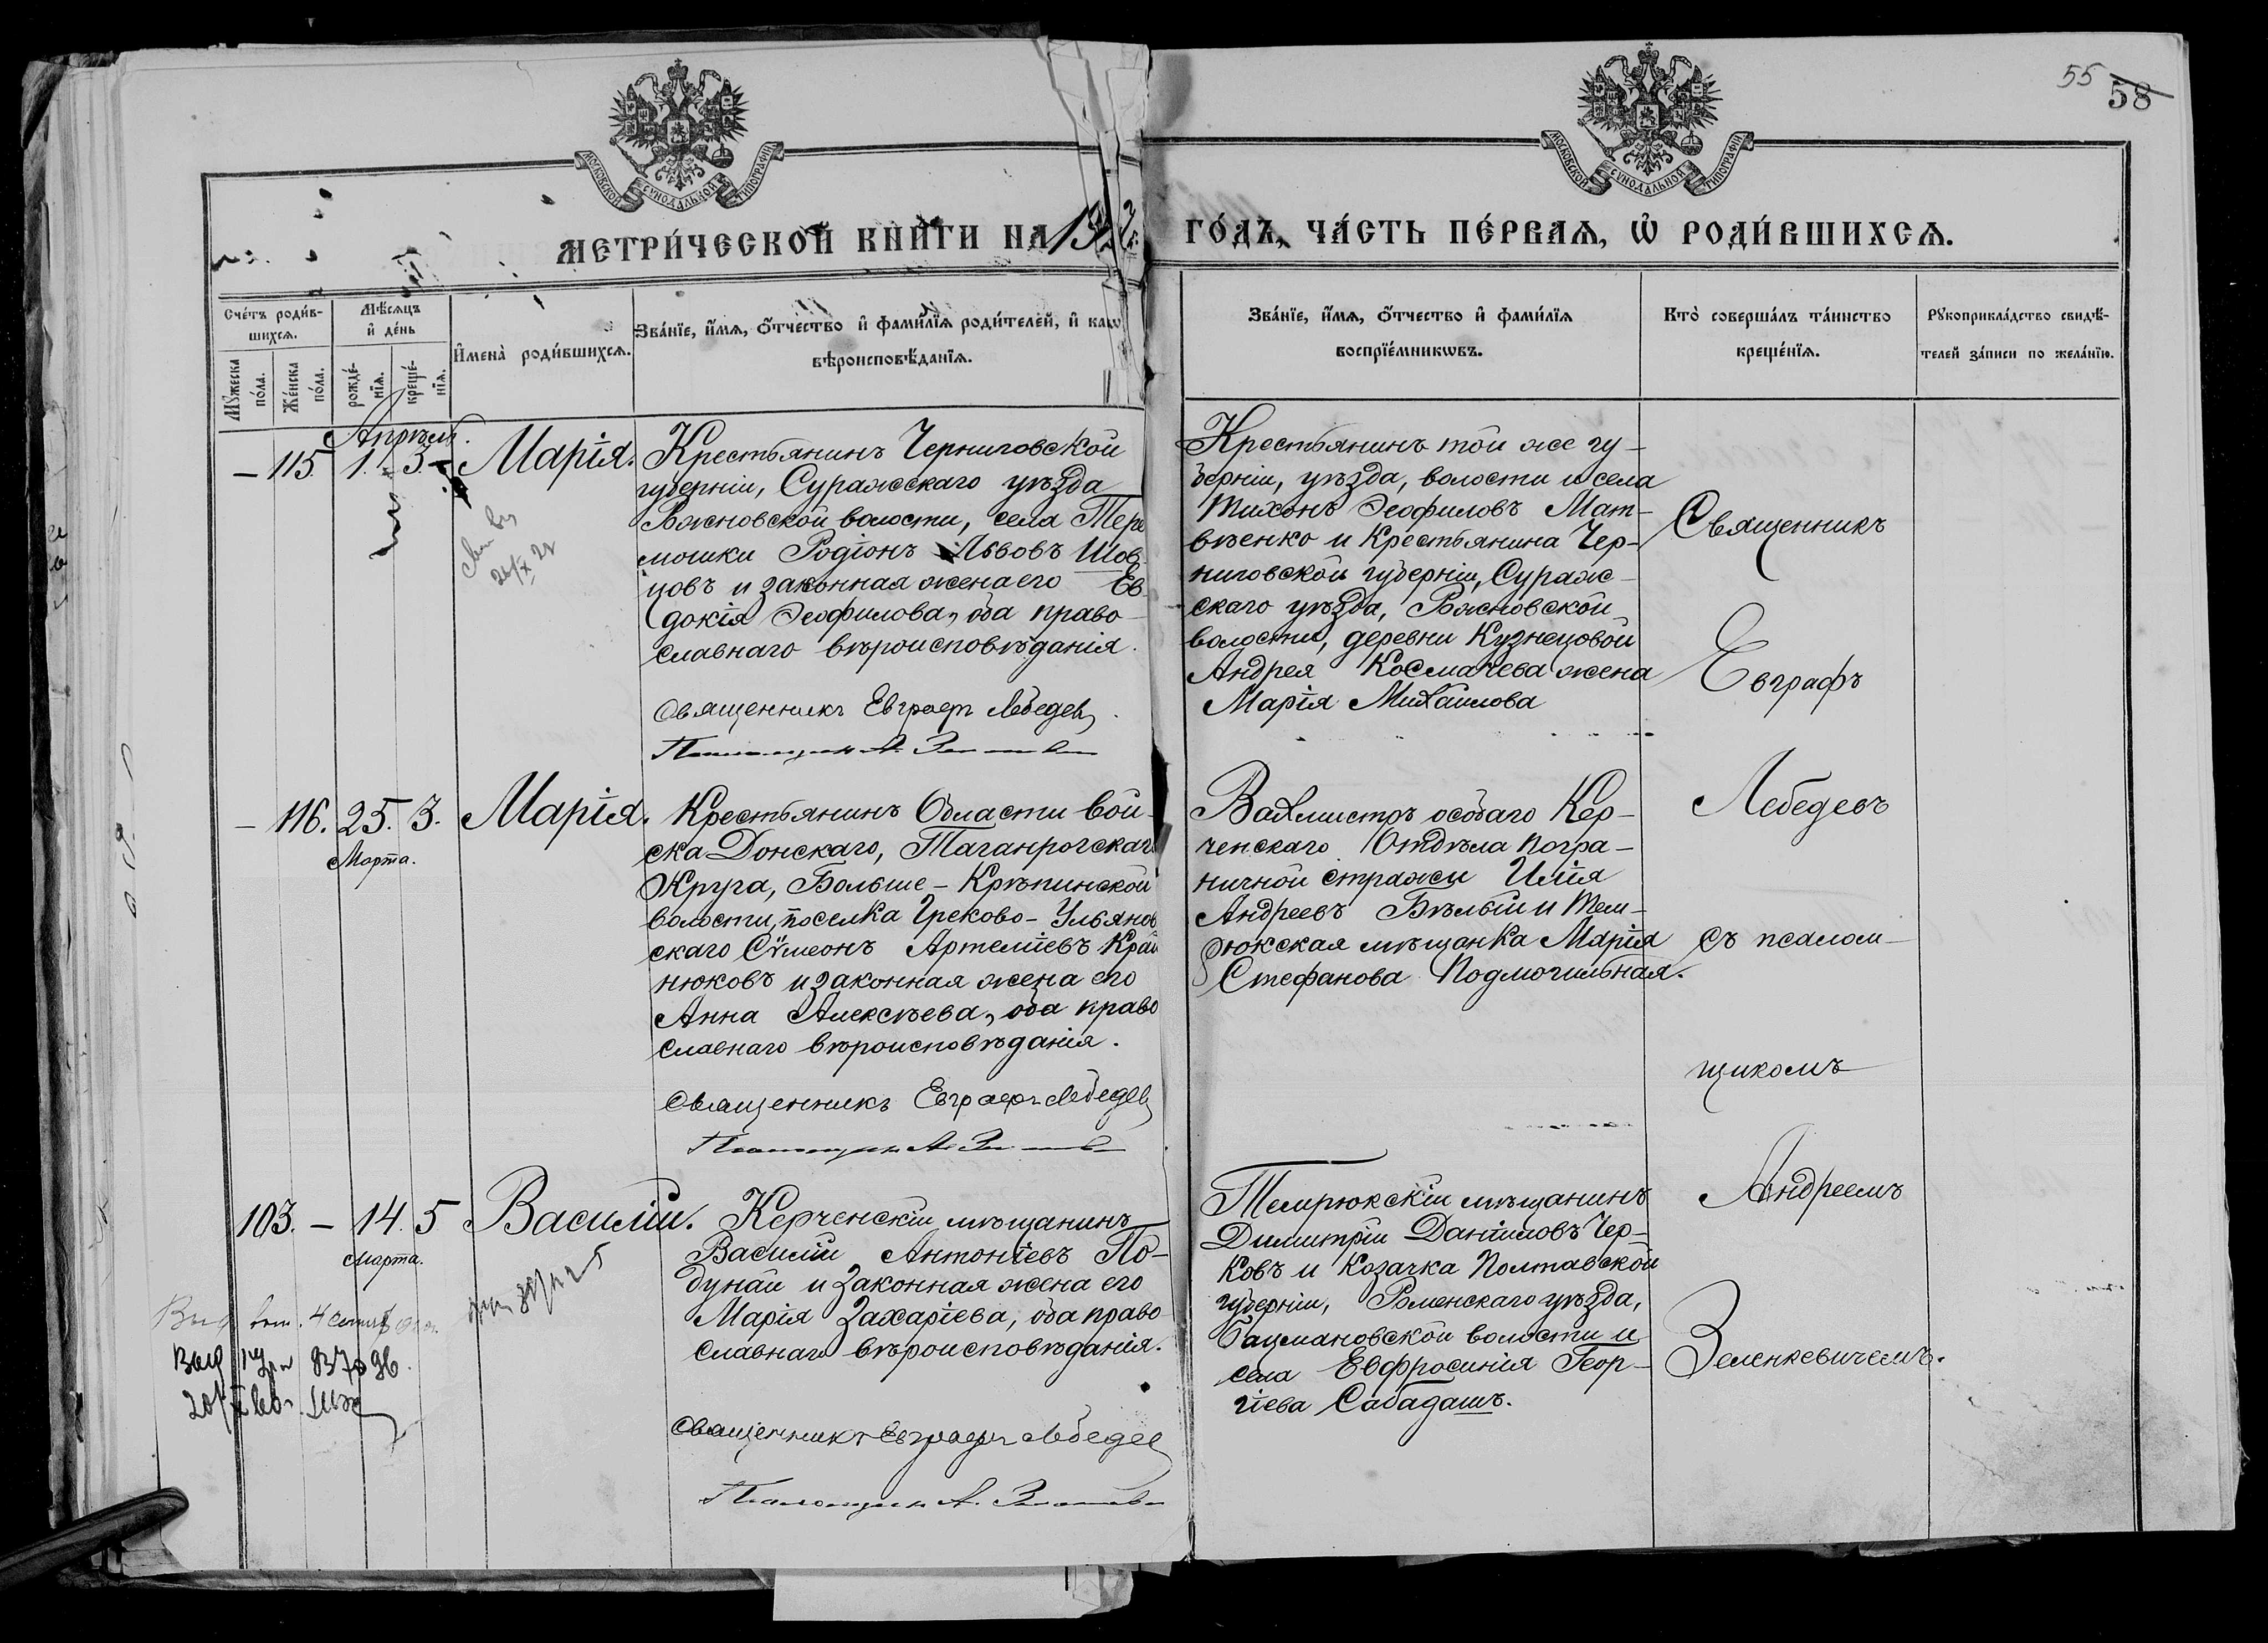 55
58
МОСКОВСКОЙ СѴНОДАЛЬНОЙ ТИПОГРАФІИ
МОСКОВСКОЙ СѴНОДАЛЬНОЙ ТИПОГРАФІИ
МЕТРИ́ЧЕСКОЙ КНИ́ГИ НА
ГО́ДЪ, ЧА́СТЬ ПЕ́РВАѦ, Ѡ РОДИ́ВШИХСѦ.
Сче́тъ роди́в-
шихсѧ.
Мѣ́сѧцъ
и де́нь
Мꙋ́жеска
по́ла.
Же́нска
по́ла.
рожде́-
нїѧ.
креще́-
нїѧ.
Имена̀ роди́вшихсѧ.
Зва́нїе, и́мѧ, о́тчество и фами́лїѧ роди́телей, и како́
вѣроисповѣ́данїѧ.
Зва́нїе, и́мѧ, о́тчество и фами́лїѧ
воспрїе́мникѡвъ.
Кто̀ соверша́лъ та́инство
креще́нїѧ.
Рꙋкоприкла́дство свидѣ́-
телей за́писи по жела́нїю.
Апрѣль.
– 115 1. 3. Марія.
Крестьянинъ Черниговской
губерніи, Суражскаго уѣзда
Ряжновской волости, села
мошки Родіонъ Львовъ Шов-
цовъ и законная жена его Ев
докія Ѳеофилова, оба право
славнаго вѣроисповѣданія.
Священникъ Евграфъ Лебедевъ
Крестьянинъ той же гу-
берніи, уѣзда, волости и села
Тихонъ Ѳеофиловъ Мат-
вѣенко и Крестьянина Чер-
ниговской губерніи, Сураж-
скаго уѣзда, Ряжновской
волости, деревни Кузнецовой
Андрея Космачева жена
Марія Михаилова
– 116. 25. 3. Марія.
Марта.
Крестьянинъ Области вой-
ска Донскаго, Таганрогскаго
Округа, Больше-Крѣпинской
волости, поселка Греково-Ульянов
скаго Сѵмеонъ Артеміевъ Край
нюковъ и законная жена его
Анна Алексѣева, оба право
славнаго вѣроисповѣданія.
Священникъ Евграфъ Лебедевъ
Вахмистръ особаго Кер-
ченскаго Отдѣла погра-
ничной стражи Илія
Андреевъ Бѣлый и Тем-
рюкская мѣщанка Марія
Стефанова Подмогильная.
103. – 14. 5 Василій.
Марта.
Керченскій мѣщанинъ
Василій Антоніевъ По-
дунай и законная жена его
Марія Захаріева, оба право
славнаго вѣроисповѣданія.
Священникъ Евграфъ Лебедев
Темрюкскій мѣщанинъ
Димитрій Даніиловъ Чер-
ковъ и Козачка Полтавской
губерніи, Роменскаго уѣзда,
Бацмановской волости и
села Евфросинія Геор-
гіева Сабадашъ.
Священникъ
Евграфъ
Лебедевъ
съ псалом-
щикомъ
Андреемъ
Зеленкевичемъ.